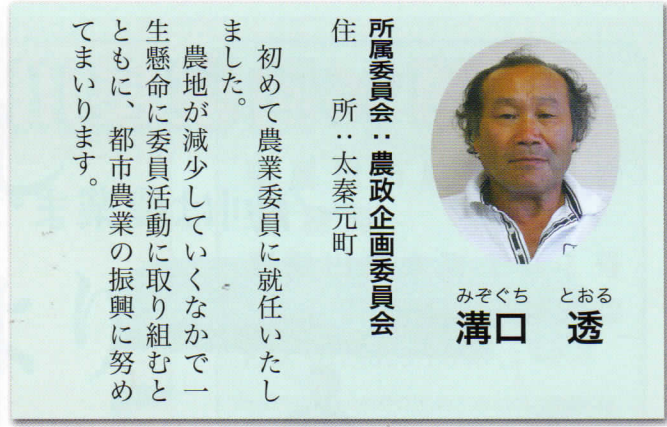 みぞぐち とおる
溝口 透
所属委員会：農政企画委員会
住 所：太秦元町
初めて農業委員に就任いたし
ました。
農地が減少していくなかで一
生懸命に委員活動に取り組むと
ともに、都市農業の振興に努め
てまいります。